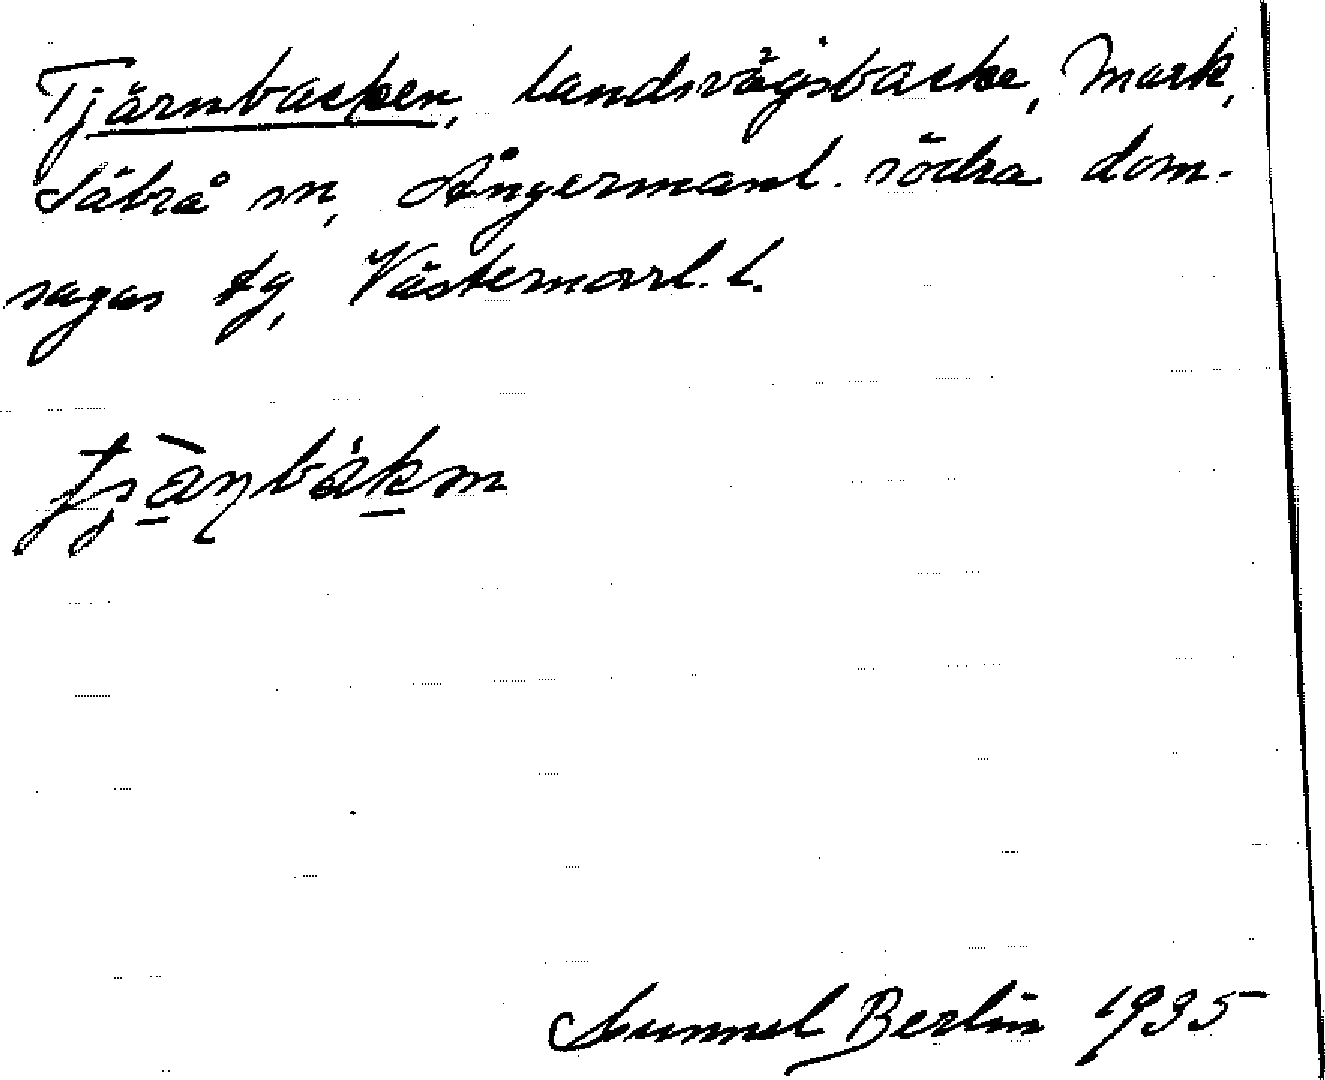 Tjärnbacken, landsvägsbacke, Mark,
Säbrå sn, Ångermanl. södra dom-
sagas tg, Västernorrl. l.
Gunnel Berlin 1935